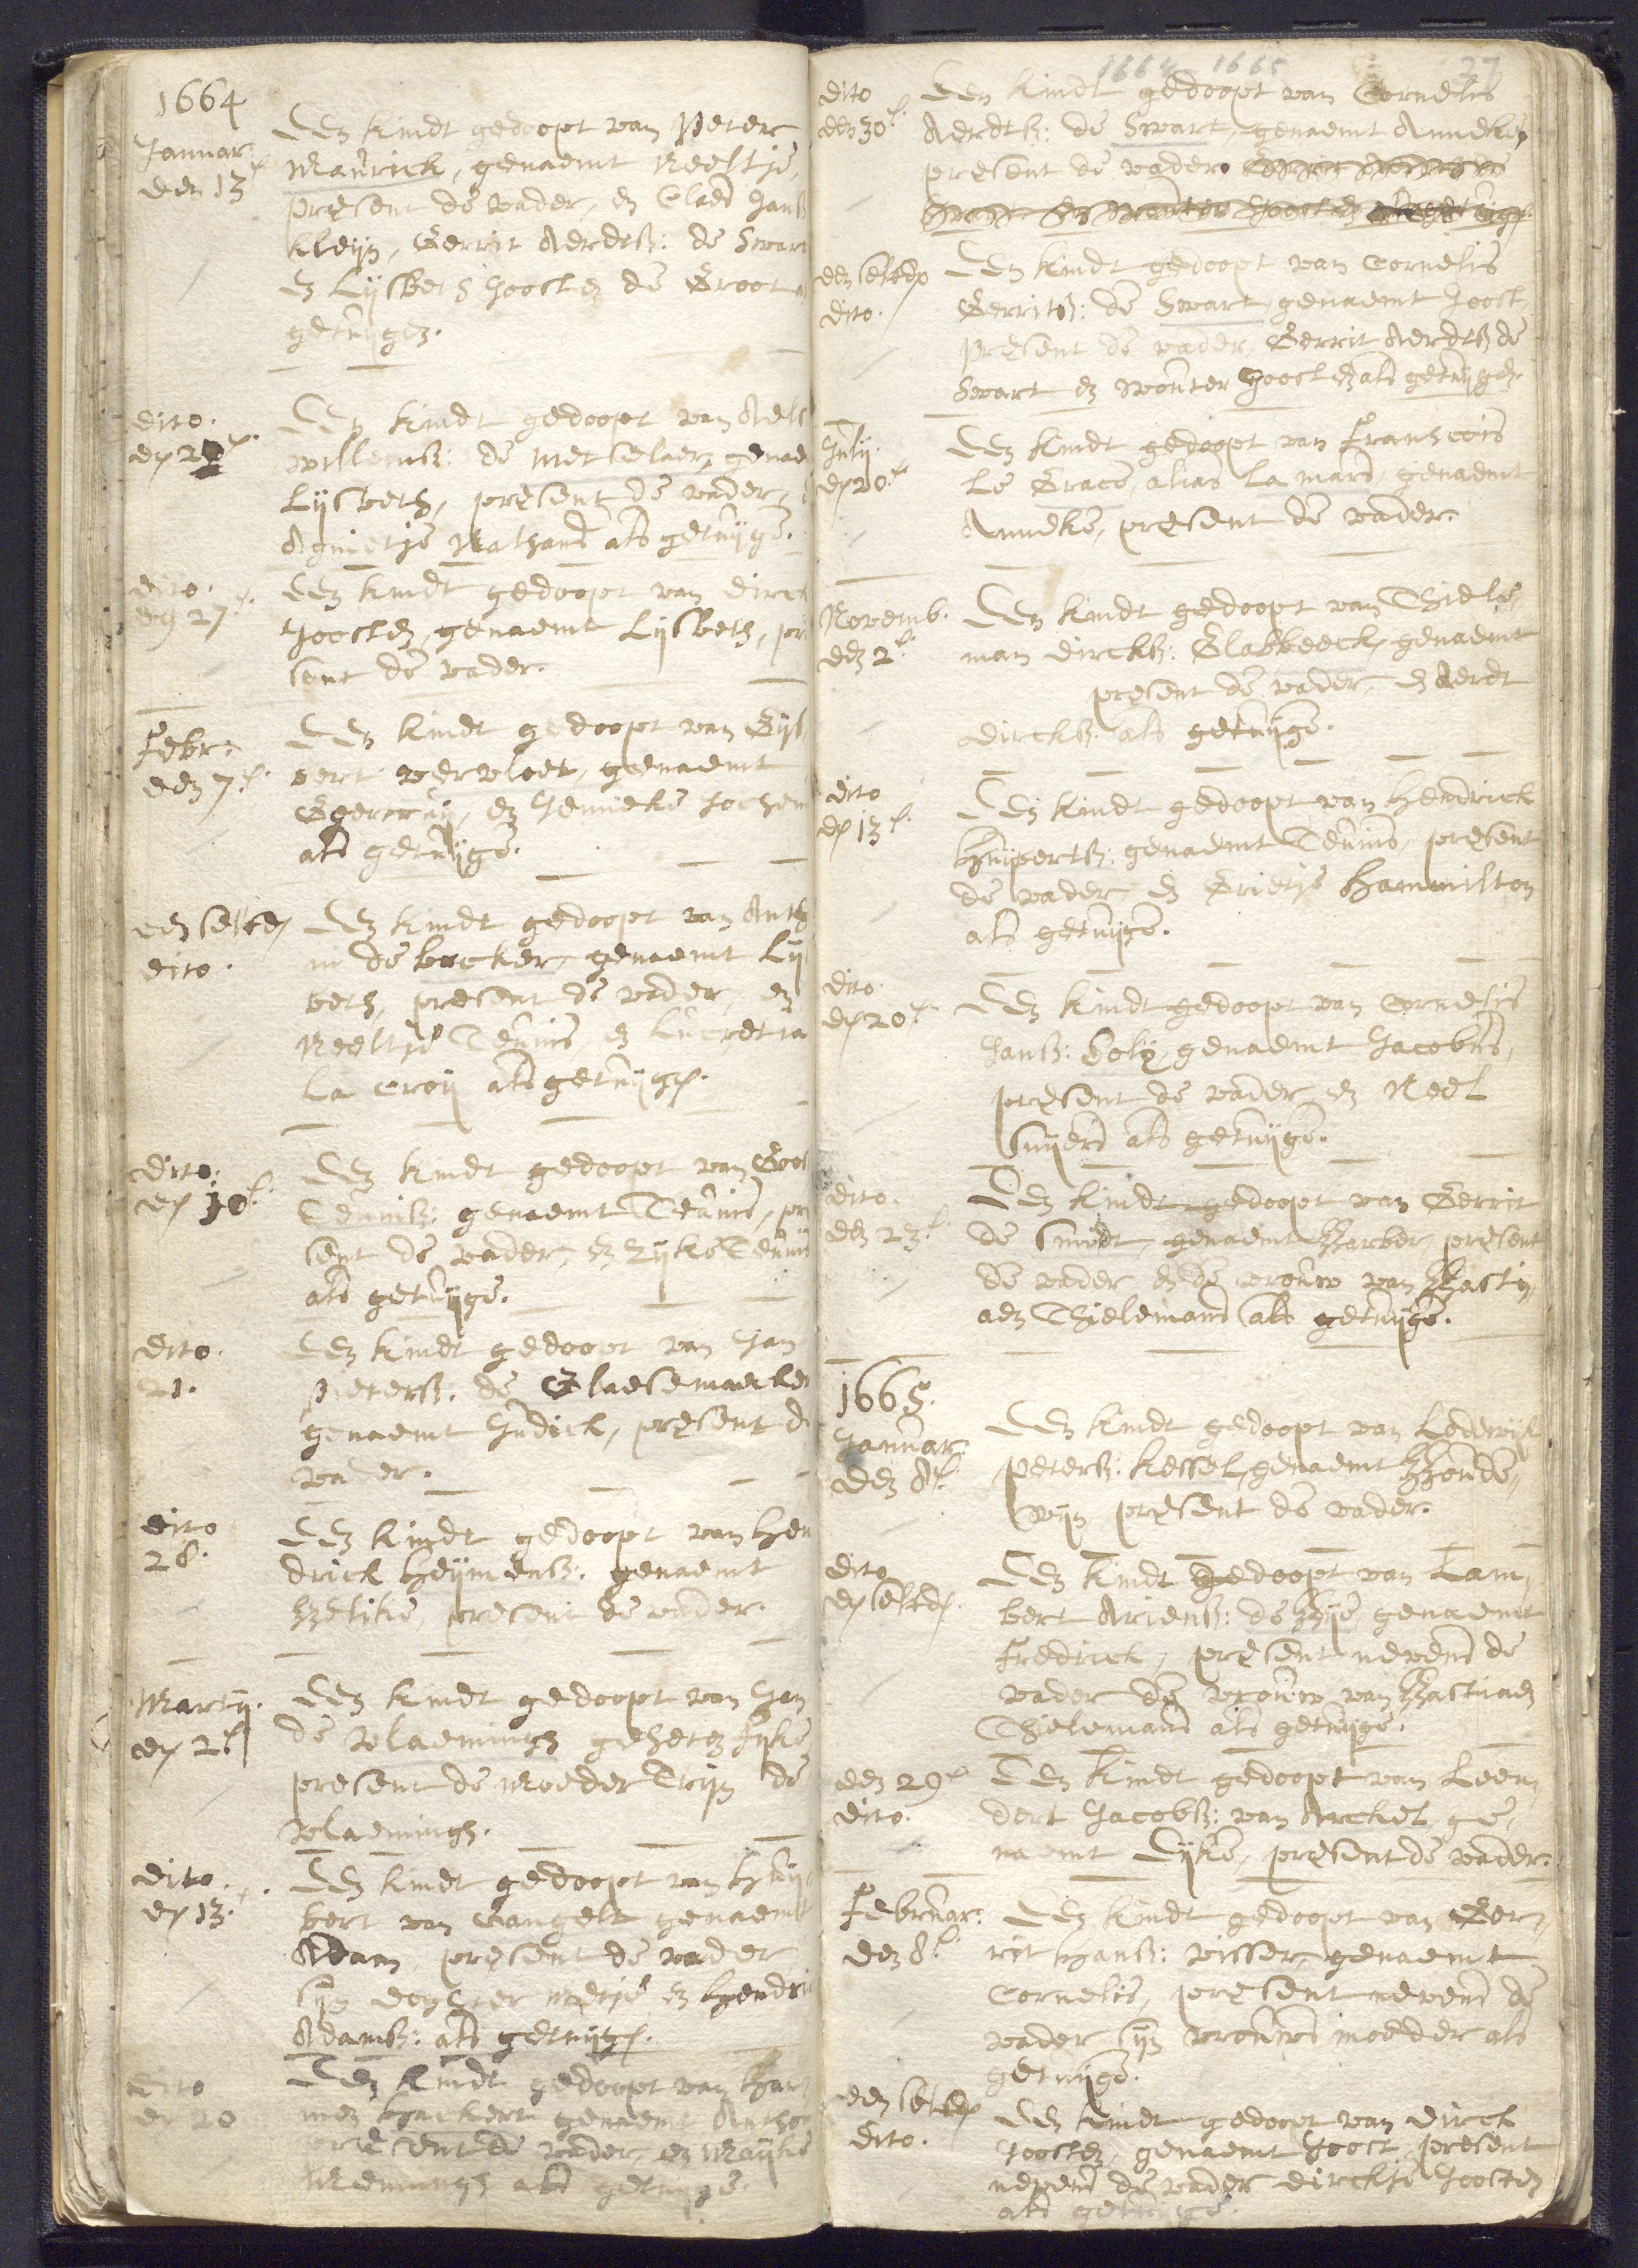 1664
Januar:
den 13e
Een kindt gedoopt van Peter
Maurick, genaemt Neeltje,
present de vader, en Claes Jans
Kleijn, Gerrit Aerdtß: de Swart
en Lijsbeth Joosten de Groot
getuijgen.
dito.
Een kindt gedoopt van
Willemß: de Metselaer,
Lijsbeth, present de vader,
als getuijge.
dito.
den 27e
Een kindt gedoopt van Dirck
Joosten, genaemt Lijsbeth, pre
sent de vader.
Febr:
den 7e
Een kindt gedoopt van Gijs
bert Vervloet, genaemt
en Jenneke Jochem
als getuijge.
den selven
dito.
Een kindt gedoopt van Anth
de backer, genaemt Lijs
beth, present de vader, en
Neeltje Teunis, en Lucretia
la Croij als getuijgen.
dito.
den 10e
Een kindt gedoopt van Goos
Teunisß: genaemt Teunis, pre
sent de vader, en Teunis
als getuijge.
dito.
21.
Een kindt gedoopt van Jan
Peterß: de Glaesemaecker
genaemt Judick, present de
vader.
dito
28.
Een kindt gedoopt van Hen
drick Heijmensß: genaemt
present de vader.
Martij.
den 2e
Een kindt gedoopt van Jan
de Vlamingh geheten Fijke
present de Moeder Trijn de
Vlamingh.
dito.
den 13e
Een kindt gedoopt van Huij
bert van Gangelt genaemt
Adam, present de vader
sijn dochter Metje en Hendri
Adamß: als getuijgen.
dito
den 20
Een kindt gedoopt van Har
men genaemt Antho
present de vader, en Maijke
als getuijge.
1664 1665
37
dito
den 30e
Een kindt gedoopt van Cornelis
Aerdtß: de Swart, genaemt Anneke,
present de vader.
den selven
dito.
Een kindt gedoopt van Cornelis
Gerritß: de Swart, genaemt Joost,
present de vader, Gerrit Aerdtß de
Swart en Wouter Joosten als getuijgen.
Julij.
den 20e
Een kindt gedoopt van Franscois
le Grace, alias la mars, genaemt
Anneke, present de vader.
Novemb.
den 2e
Een kindt gedoopt van Thiele
man Dirckß: Clabbeeck, genaemt
present de vader, en Aerdt
Dirckß. als getuijge.
dito
den 13e
Een kindt gedoopt van Hendrick
Huijbertß: genaemt Teunis, present
de vader, en Grietje Hammilton
als getuijge.
dito.
den 20e
Een kindt gedoopt van Cornelis
Jansß: genaemt Jacobus,
present de vader, en Neel
als getuijge.
dito.
den 23e
Een kindt gedoopt van Gerrit
de Smidt, genaemt Barber, present
de vader, en de vrouw van Basti,
aen Thielemans als getuijge.
1665.
Januar:
den 8e
Een kindt gedoopt van Lodewijk
Peterß: Kessel, genaemt Boude,
wijn present de vader.
dito
den selven.
Een kindt gedoopt van Lam,
bert Ariensß: de Bije, genaemt
Fredrick, present nevens de
vader de vrouw van Bastiaen
Thielemans als getuijge.
den 29e
dito.
Een kindt gedoopt van Leen,
dert Jacobß: van Arckel, ge,
naemt present de vader.
Februar:
den 8e
Een kindt gedoopt van Ger,
rit Hansß: Visser, genaemt
Cornelis, present nevens de
vader sijn vrouws moeder als
getuijge.
den selven
dito.
Een kindt gedoopt van Dirck
Joosten, genaemt Joost, present
nevens de vader Dirckje Joosten
als getuijge.